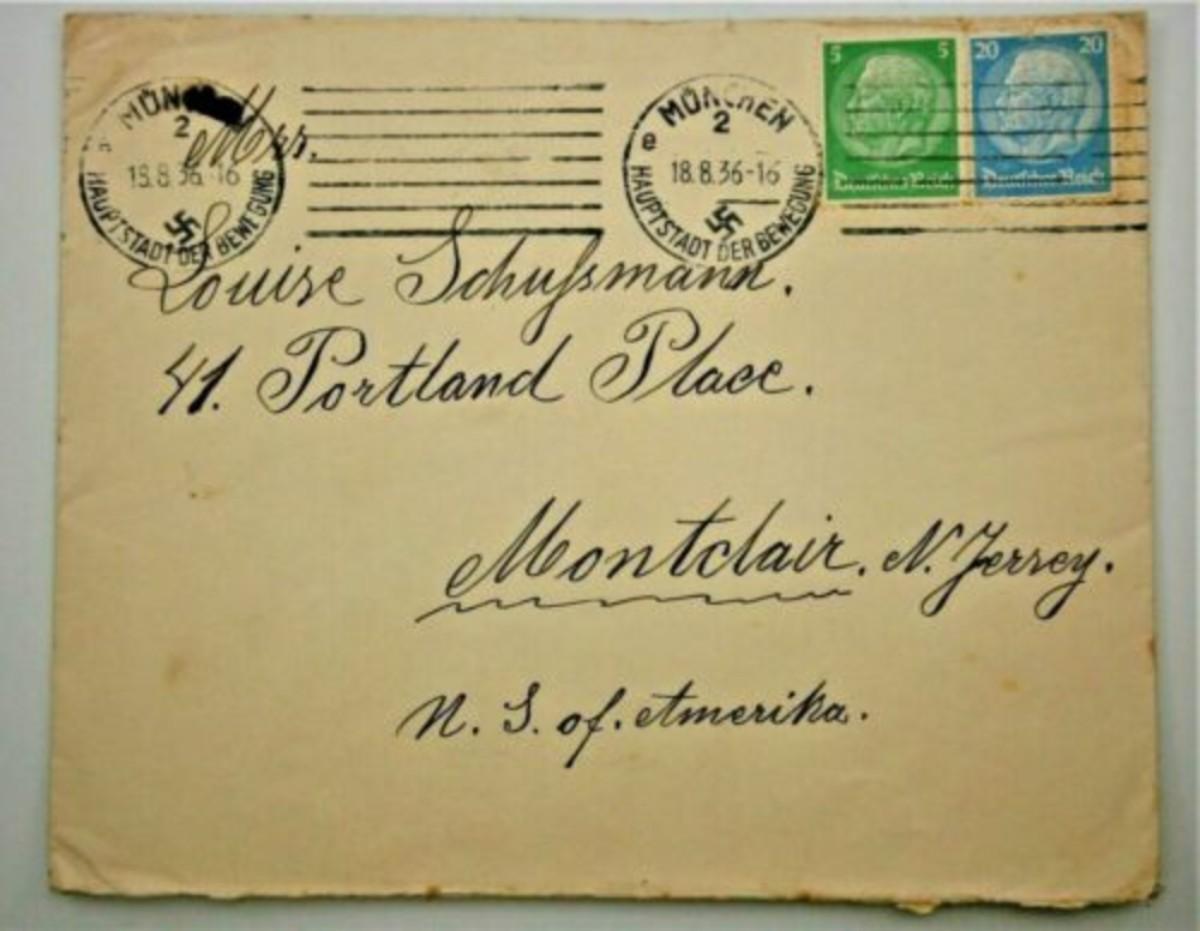 MÜNCHEN
2
18.8.36-16
HAUPTSTADT DER BEWEGUNG
e MÜNCHEN
2
18.8.36-16
HAUPTSTADT DER BEWEGUNG
5 5
Deutsches Reich
20 20
Deutsches Reich
Mrs.
Louise Schußmann.
41. Portland Place.
Montclair. N. Jersey.
N. S. of. Amerika.